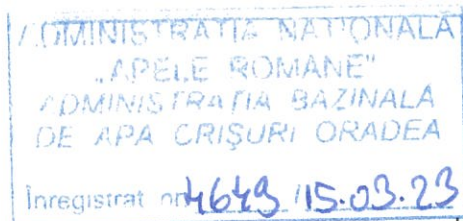 ADMINISTRAȚIA NAȚIONALĂ
„APELE ROMÂNE”
ADMINISTRAȚIA BAZINALĂ
DE APĂ CRIȘURI ORADEA
Înregistrat nr. 4649 /15.03.23